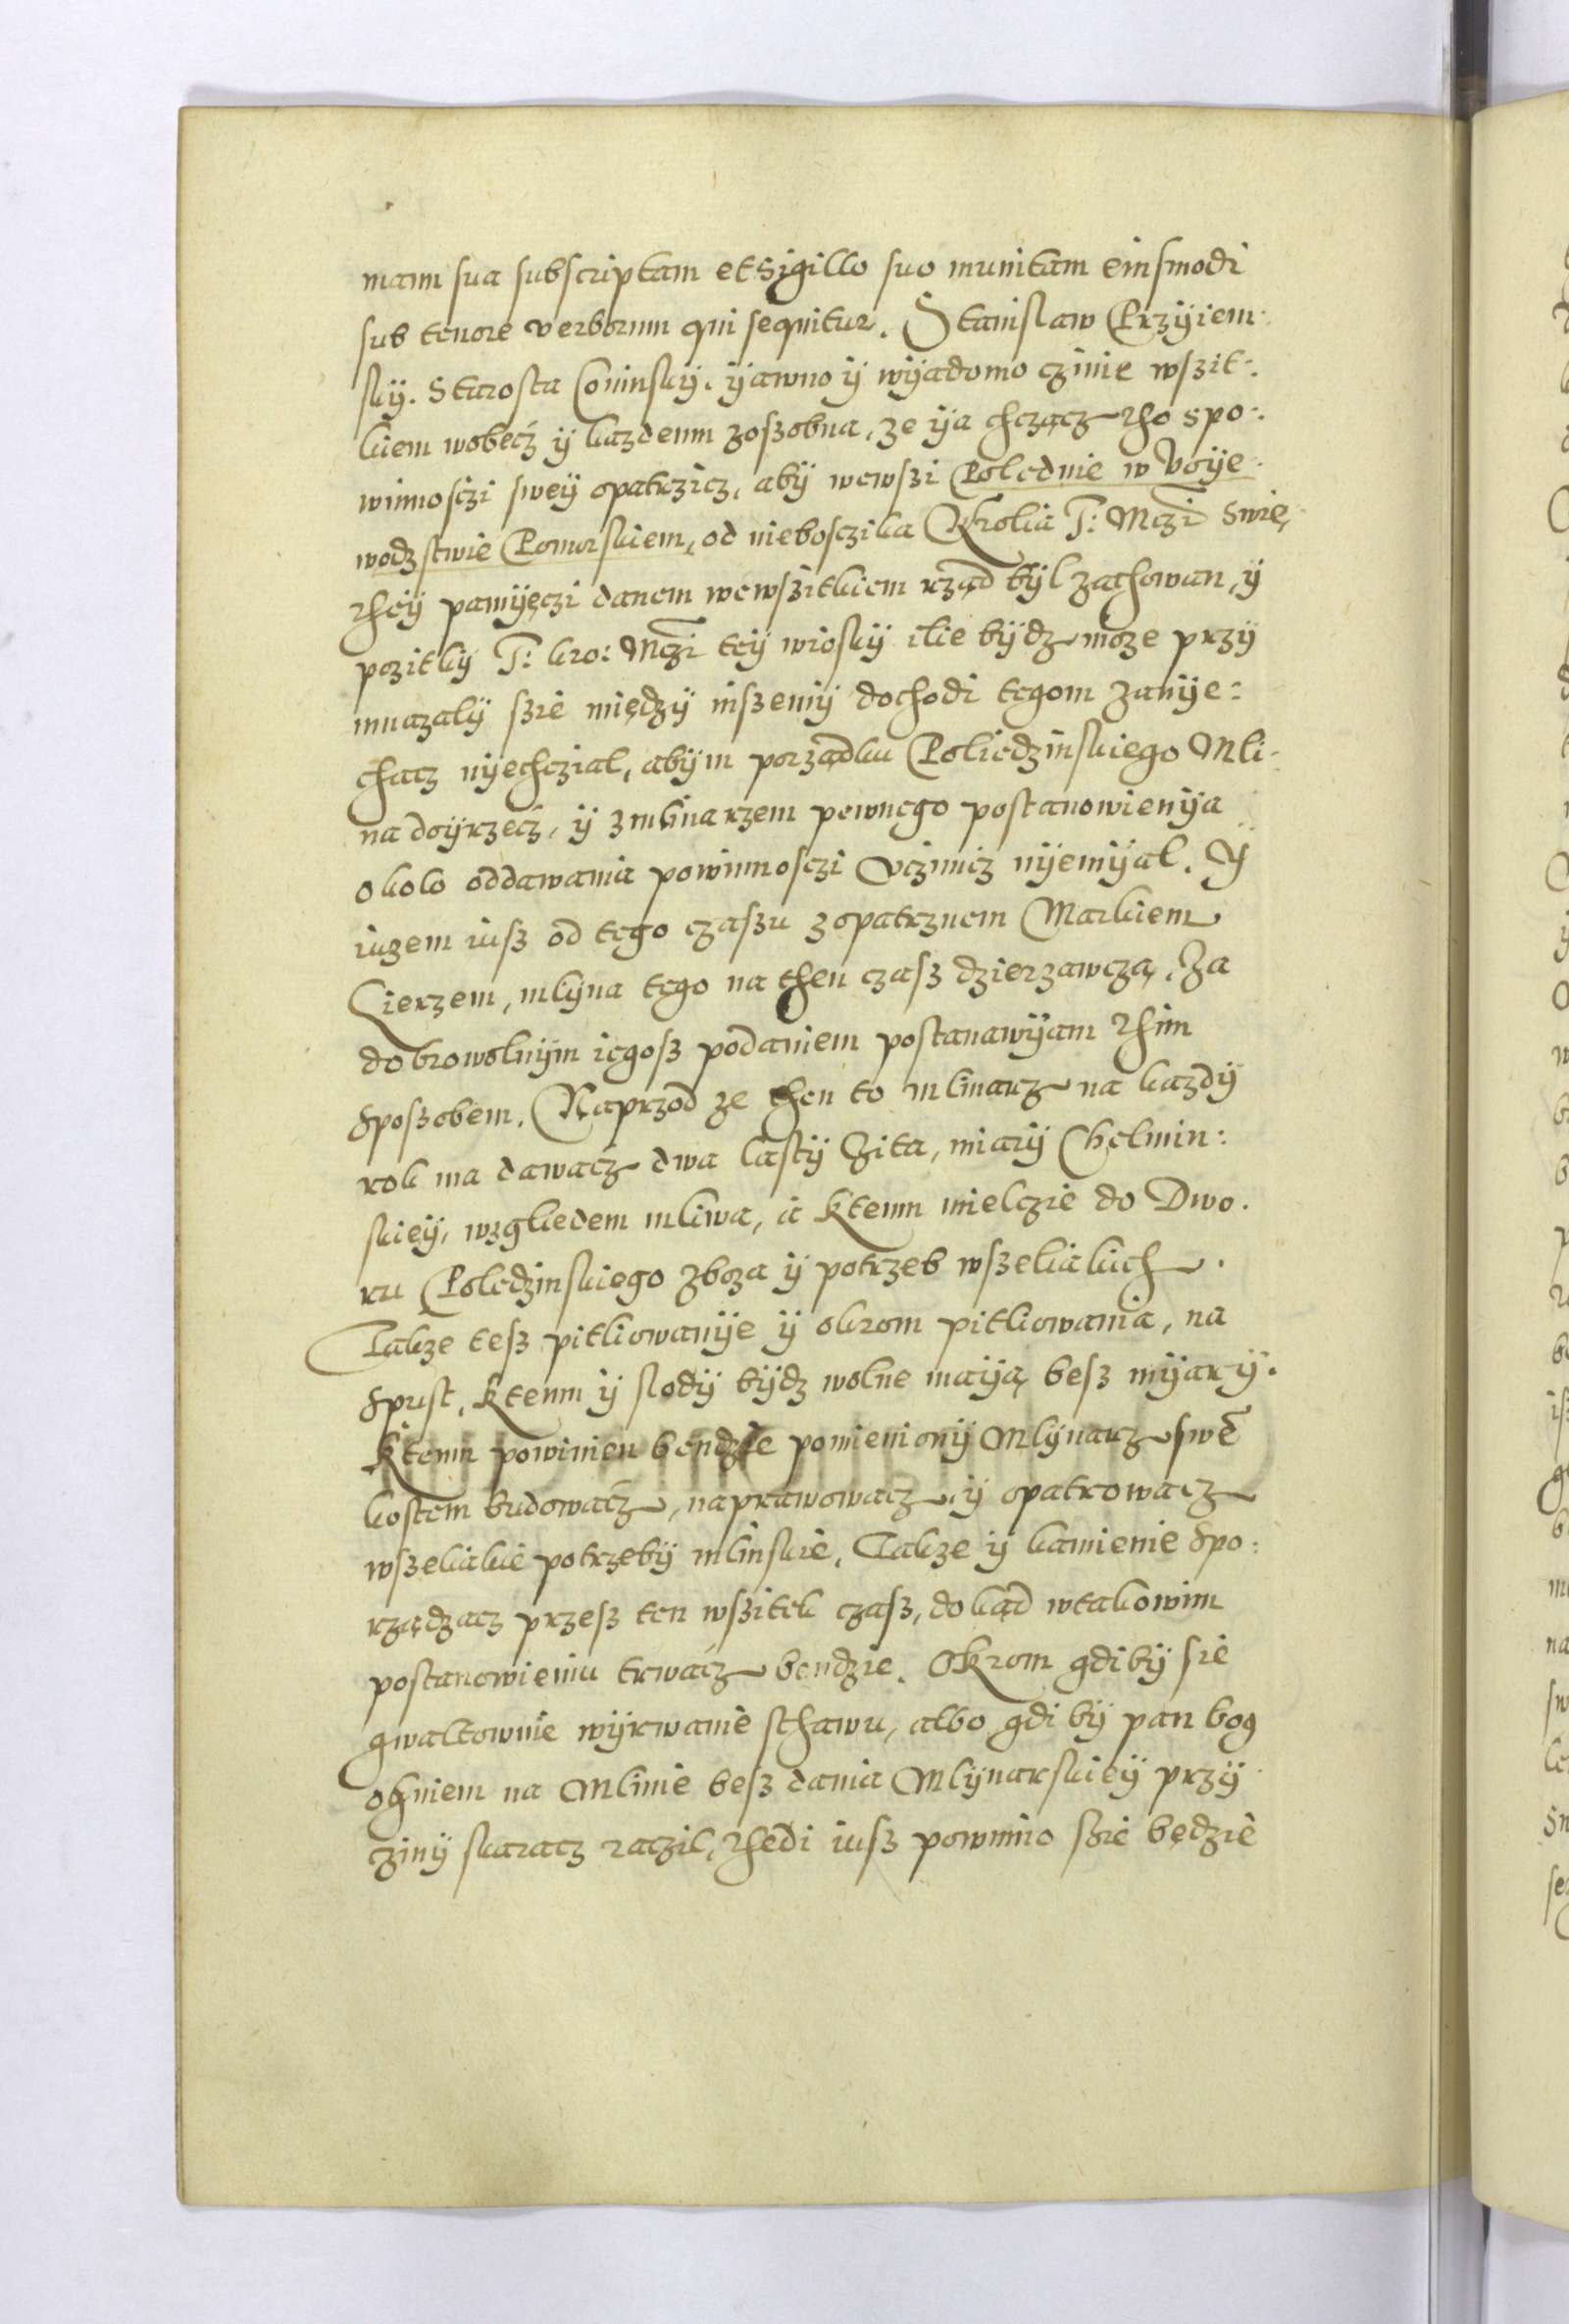 manu sua subscriptam et Sigillo suo munitam eiusmodi
sub tenore verborum qui sequitur. Stanislaw Przÿiem:
skÿ. Starosta Coninskÿ. ÿawno ÿ wÿadomo czinie wszit:
kiem wobecz ÿ kazdemu zoszobna, ze ÿa chcząncz tho s po:
winnosczi sweÿ opatrzicz, abÿ wewszi Polednie w Voÿe
wodzstwie Pomorskiem, od nieboscika Khrolia J: Mczi Swię
theÿ pamÿęczi danem wewszitkiem rząd bÿl zachowan, ÿ
pozitkÿ J: kro: Mczi teÿ wioskÿ ilie bÿdz moze przÿ
mnazalÿ szie międzÿ inszemÿ dochodi tegom zanÿe:
chacz nÿechczial, abÿm porządku Poliedzinskiego Mli
na doÿrzecz, ÿ zmlinarzem pewnego postanowienÿa
okolo oddawania powinnosczi Vczinicz nÿemÿal. Ÿ
iuzem iusz od tego czaszu zopatrznem Markiem
Cierzem, mlÿna tego na then czasz dzierzawczą, Za
dobrowolnÿm iegosz podaniem postanawÿam thim
sposzobem. Naprzod ze then to mlinarz na kazdÿ
rok ma dawacz dwa lastÿ Zita, miarÿ Chelmin:
skieÿ, wzgliedem mliwa, a ktemu mielczie do Dwo.
ru Poledzinskiego zboza ÿ potrzeb wszeliakich.
Takze tesz pitliowanÿe ÿ okrom pitliowania, na
spust, ktemu ÿ slodÿ bÿdz wolne maÿą besz mÿarÿ.
Ktemu powinien bendzie pomienionÿ Mlÿnarz swē
kostem budowacz, naprawowacz ÿ opatrowacz
wszeliakie potrzebÿ mlinskie, Takze ÿ kamienie spo:
rządzacz przesz ten wszitek czasz, dokąd wtakowim
postanowieniu trwacz bendzie. Okrom gdibÿ sie
gwaltownie wÿrwanie sthawu, albo gdi bÿ pan bog
ogniem na Mlinie besz dania Mlÿnarskieÿ przÿ
czinÿ skaracz raczil, thedi iusz powinno szie będzie